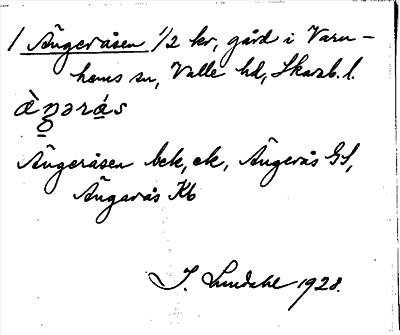 1 Ängeråsen 1/2 kr, gård i Varn-
hems sn, Valle hd, Skarab. l.
Ängeråsen bek, ek, Ängerås GS,
Ängarås Kb
I. Lundahl 1928.